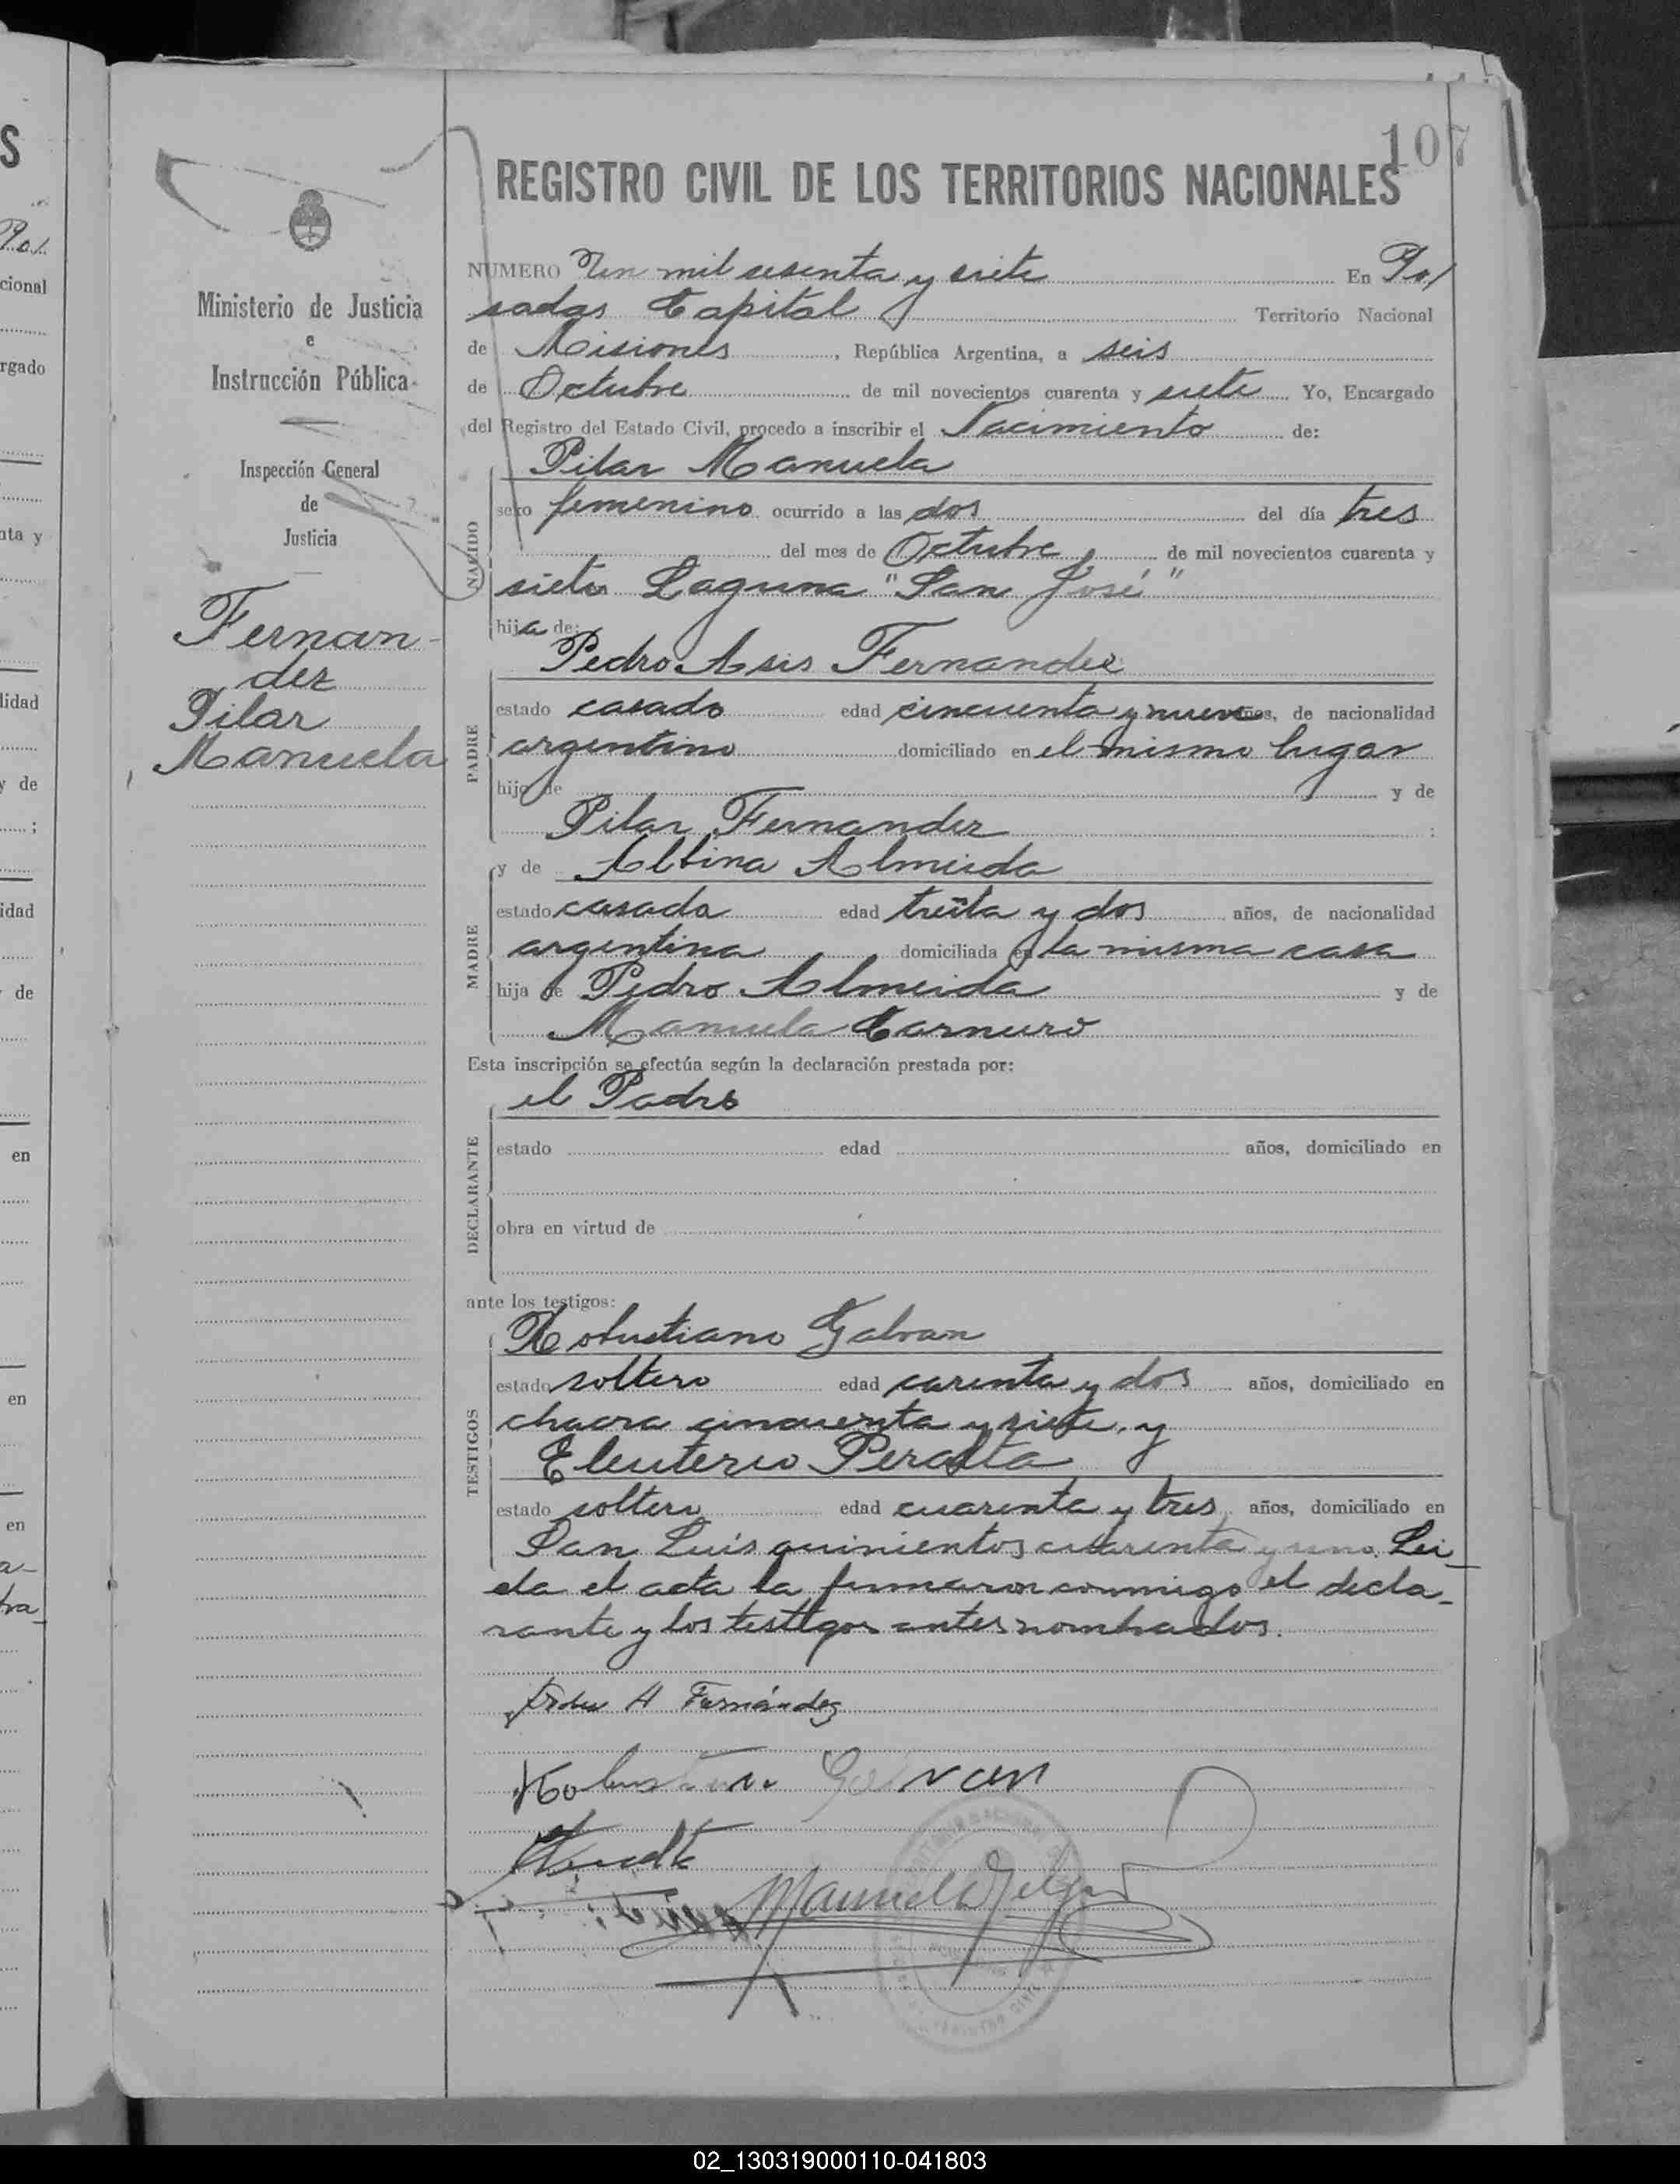 107
REGISTRO CIVIL DE LOS TERRITORIOS NACIONALES
Ministerio de Justicia
e
Instrucción Pública
Inspección General
de
Justicia
Fernan-
dez
Pilar
Manuela
NUMERO Un mil sesenta y siete En Po/
sadas Capital Territorio Nacional
de Misiones, República Argentina, a seis
de Octubre de mil novecientos cuarenta y siete Yo, Encargado
del Registro del Estado Civil, procedo a inscribir el Nacimiento de:
Pilar Manuela
NACIDO
sexo femenino ocurrido a las dos del día tres
del mes de Octubre de mil novecientos cuarenta y
siete Laguna "San José"
hija de:
Pedro Asis Fernandez
PADRE
estado casado edad cincuenta y nueve años, de nacionalidad
argentino domiciliado en el mismo lugar
hijo de y de
Pilar Fernandez ;
y de Albina Almeida
MADRE
estado casada edad treita y dos años, de nacionalidad
argentina domiciliada en la misma casa
hija de Pedro Almeida y de
Manuela Carneiro
Esta inscripción se efectúa según la declaración prestada por:
el Padre
DECLARANTE
estado edad años, domiciliado en
obra en virtud de
ante los testigos:
Robustiano Galvan
TESTIGOS
estado soltero edad carenta y dos años, domiciliado en
chacra cincuenta y siete, y
Eleuterio Peralta
estado soltero edad cuarenta y tres años, domiciliado en
San Luis quinientos cuarenta y uno. Lei-
da el acta la firmaron conmigo el decla-
rante y los testigos antes nombrados.
Pedro A Fernández
Robustiano Galvan
02_130319000110-041803